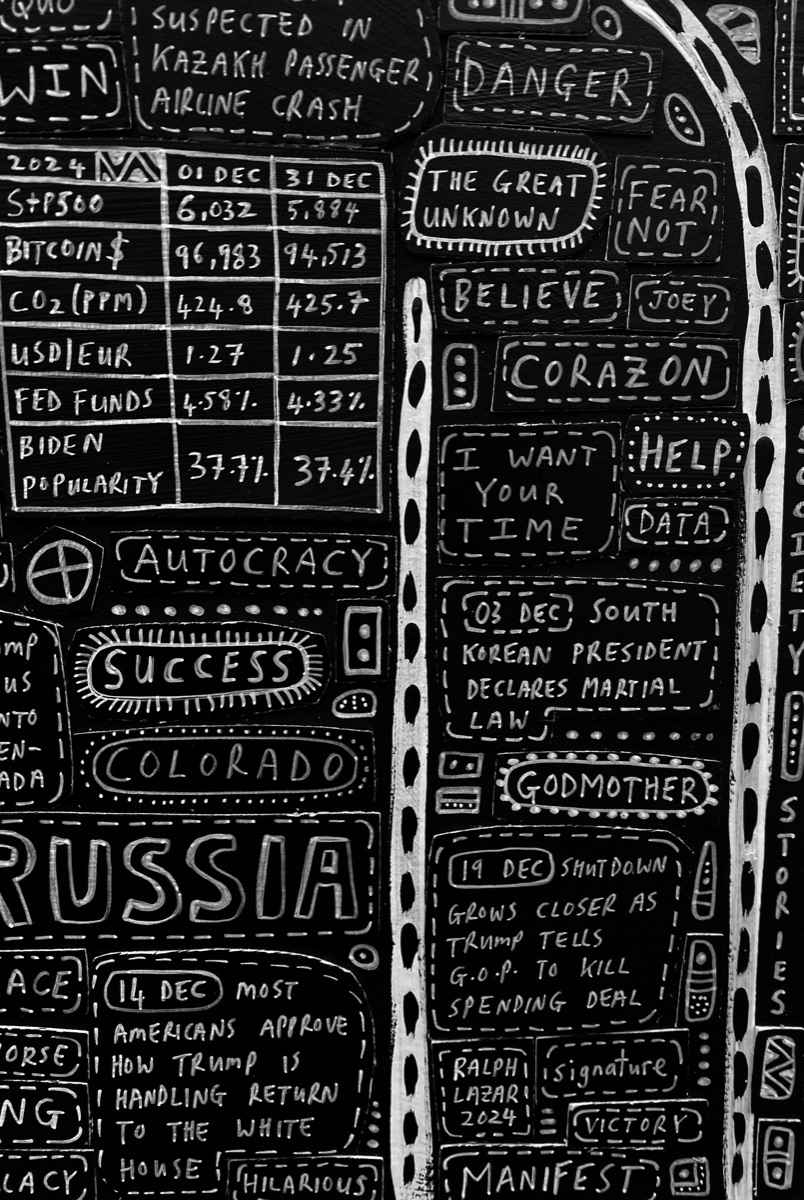 QUO
WIN
SUSPECTED IN
KAZAKH PASSENGER
AIRLINE CRASH
DANGER
THE GREAT
UNKNOWN
FEAR
NOT
2024 01 DEC 31 DEC
S+P500 6,032 5,884
BITCOIN $ 96,983 94,513
CO2 (PPM) 424.8 425.7
USD/EUR 1.27 1.25
FED FUNDS 4.58% 4.33%
BIDEN
POPULARITY 37.7% 37.4%
BELIEVE
JOEY
CORAZON
I WANT
YOUR
TIME
HELP
DATA
AUTOCRACY
SUCCESS
COLORADO
MP
US
NTO
EN-
ADA
03 DEC SOUTH
KOREAN PRESIDENT
DECLARES MARTIAL
LAW
GODMOTHER
RUSSIA
19 DEC SHUTDOWN
GROWS CLOSER AS
TRUMP TELLS
G.O.P. TO KILL
SPENDING DEAL
STORIES
ACE
ORSE
NG
LACY
14 DEC MOST
AMERICANS APPROVE
HOW TRUMP IS
HANDLING RETURN
TO THE WHITE
HOUSE
HILARIOUS
RALPH
LAZAR
2024
signature
VICTORY
MANIFEST